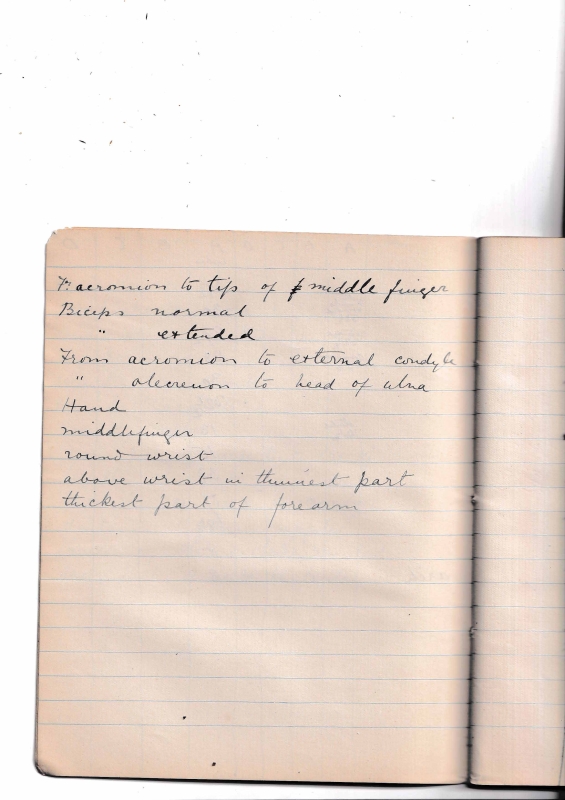 Fr acromion to tips of middle finger
Biceps normal
" extended
From acromion to external condyle
" olecrenon to head of ulna
Hand
middlefinger
round wrist
above wrist in thinnest part
thickest part of forearm